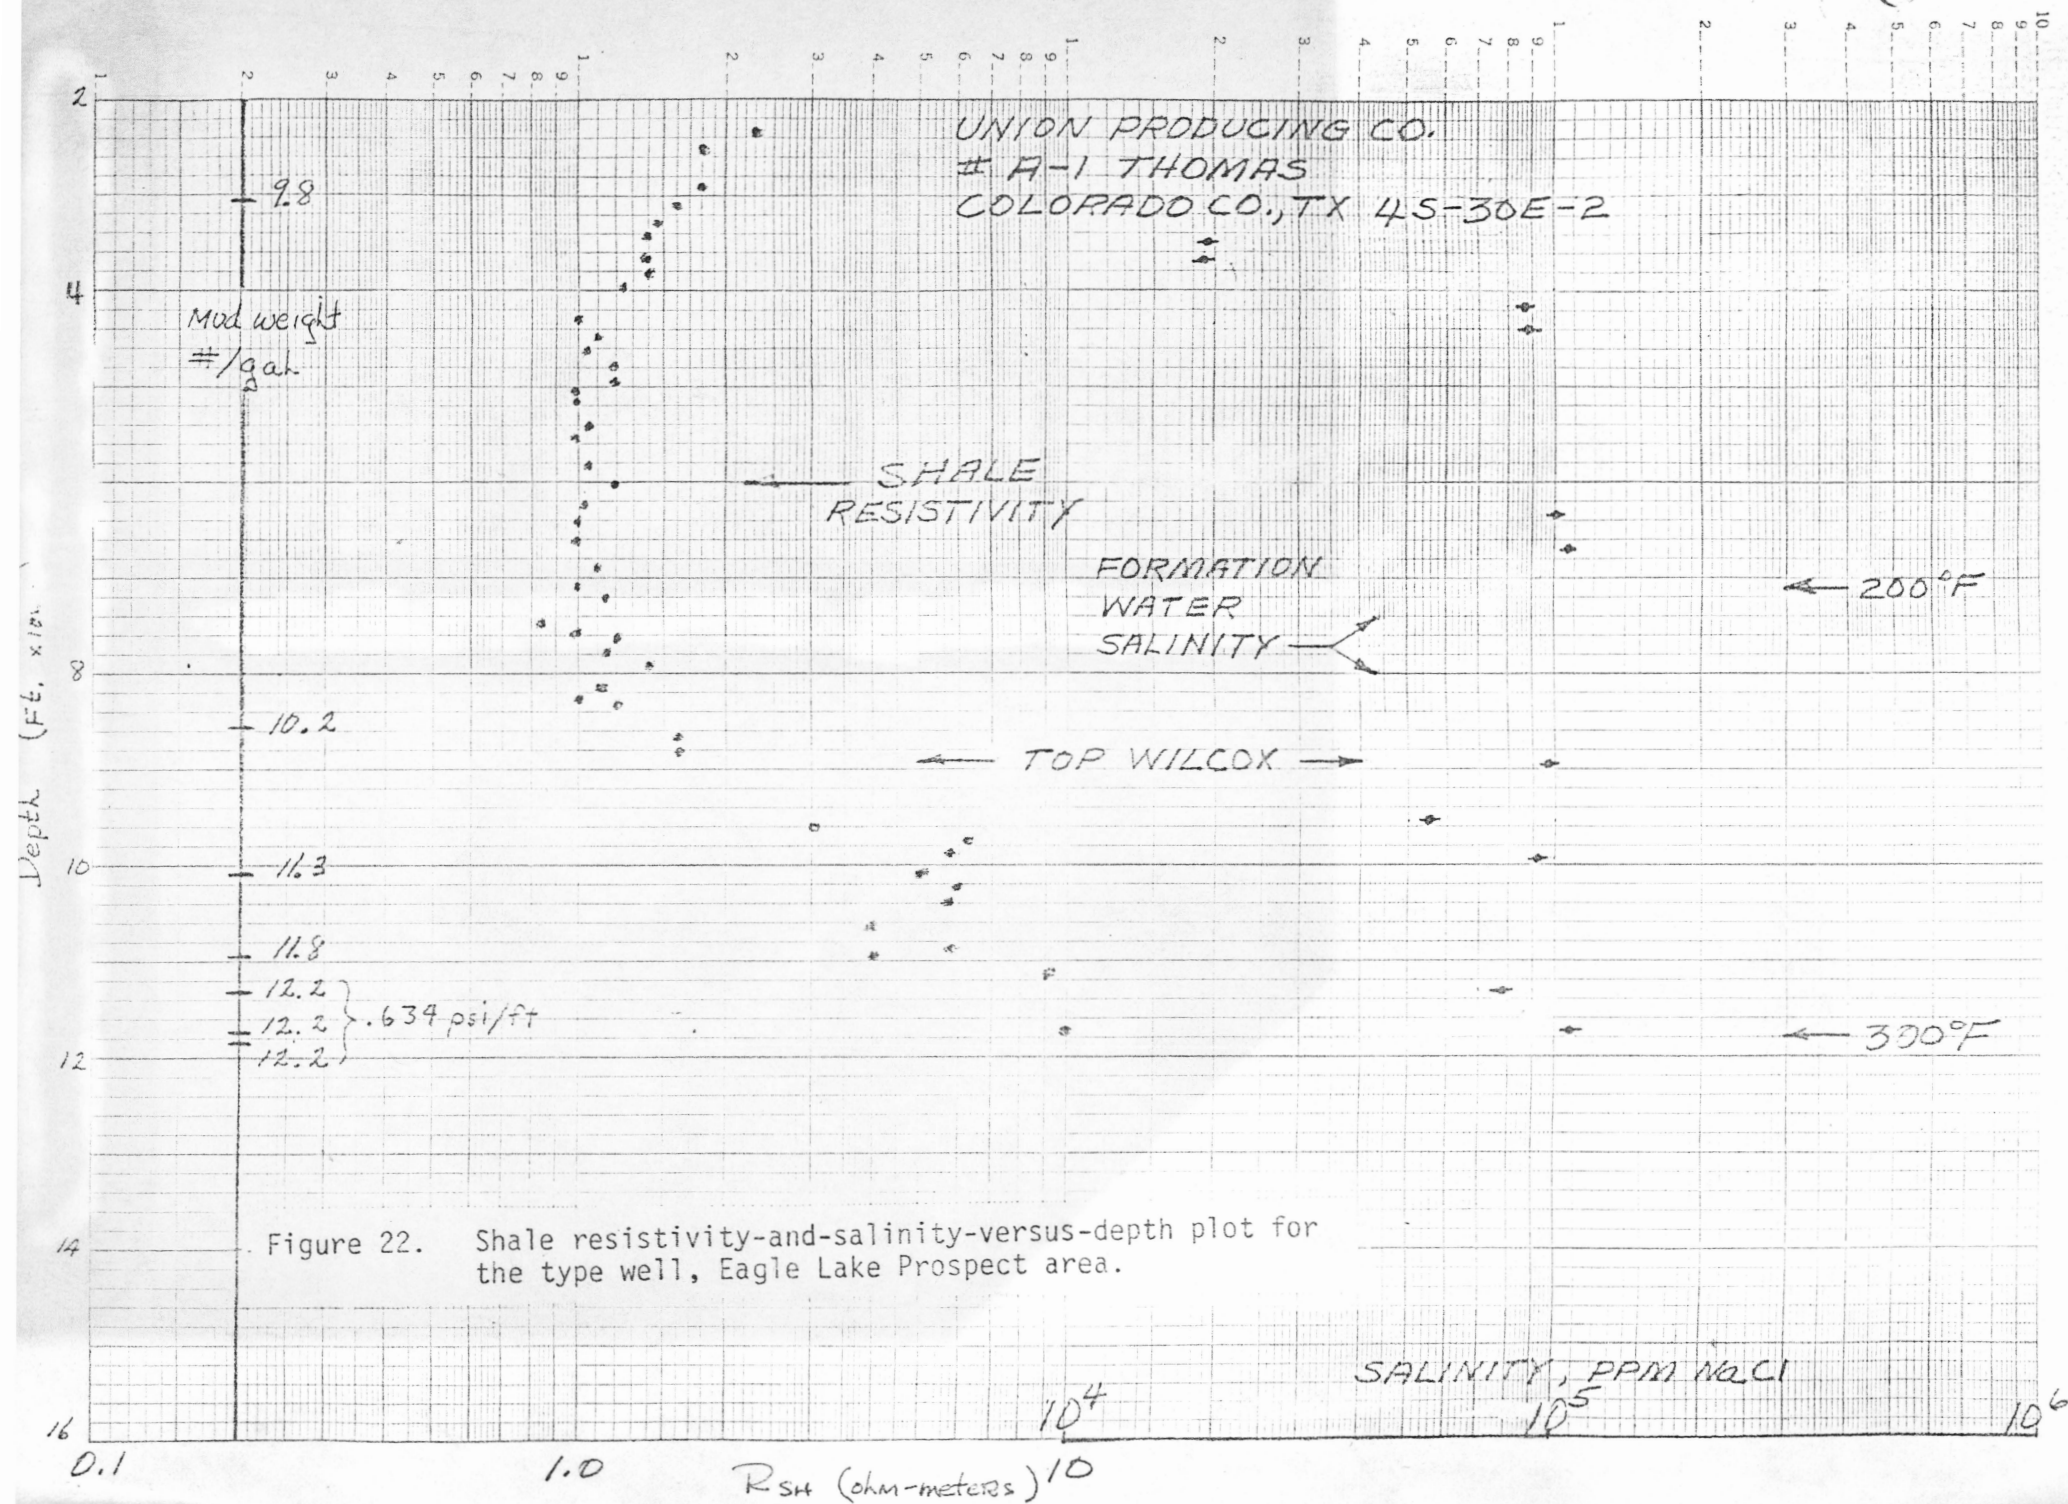 1 2 3 4 5 6 7 8 9 1 2 3 4 5 6 7 8 9 1 2 3 4 5 6 7 8 9 1 2 3 4 5 6 7 8 9 10
2
UNION PRODUCING CO.
# A-1 THOMAS
9.8
COLORADO CO., TX 4S-30E-2
4
Mud weight
#/gal
SHALE
RESISTIVITY
FORMATION
WATER
SALINITY
200°F
8
10.2
TOP WILCOX
Depth (Ft.
10
11.3
11.8
12.2
12.2
12.2
.634 psi/ft
300°F
12
14
Figure 22. Shale resistivity-and-salinity-versus-depth plot for
the type well, Eagle Lake Prospect area.
SALINITY, PPM NaCl
10⁴ 10⁵ 10⁶
16
0.1 1.0 10
RSH (ohm-meters)